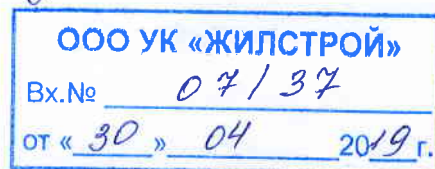 ООО УК «ЖИЛСТРОЙ»
Вх.№ 07/37
от « 30 » 04 2019 г.